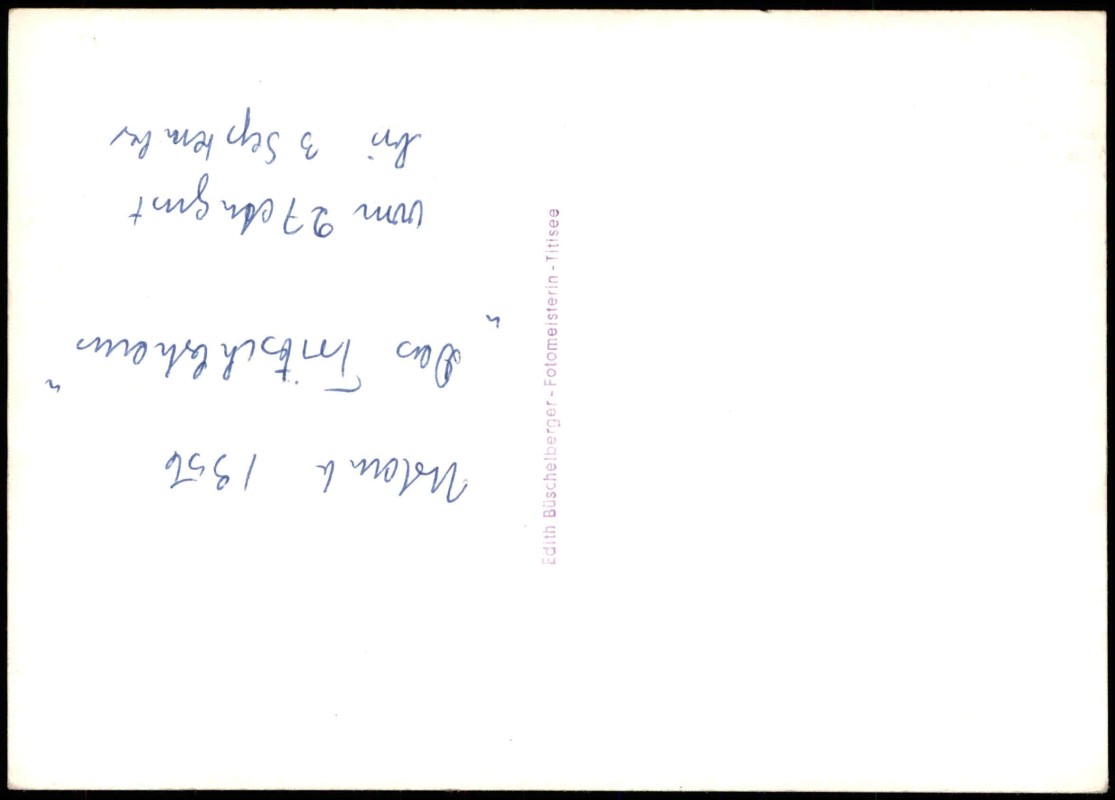 Urlaub 1956
„Das
vom 27 August
bis 3 September
Edith Büschelberger - Fotomeisterin - Titisee